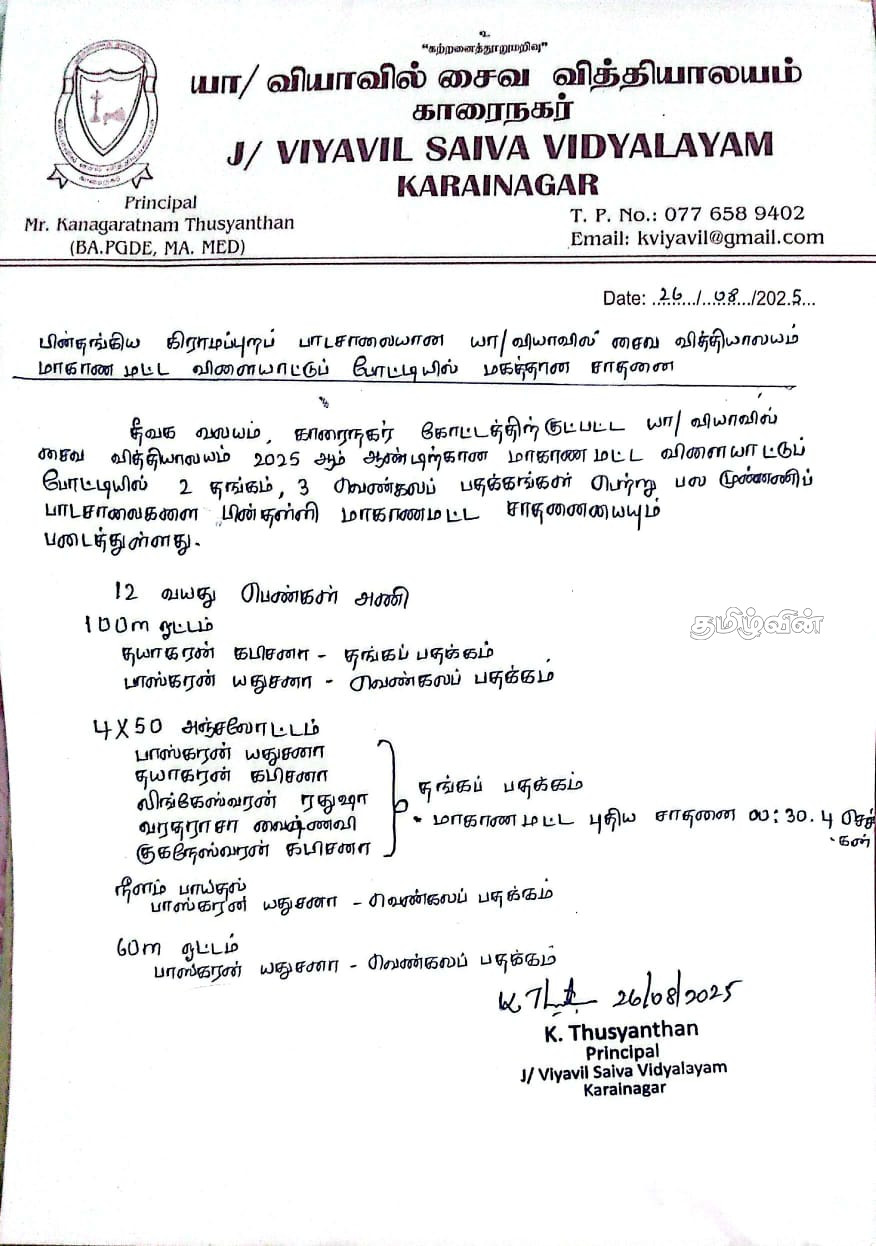 உ
"கற்றனைத்தூறுமறிவு"
யா/ வியாவில் சைவ வித்தியாலயம்
காரைநகர்
J/ VIYAVIL SAIVA VIDYALAYAM
KARAINAGAR
Principal
Mr. Kanagaratnam Thusyanthan
(BA.PGDE, MA. MED)
T. P. No.: 077 658 9402
Email: kviyavil@gmail.com
Date: 26/08/2025
பின்தங்கிய கிராமப்புறப் பாடசாலையான யா/வியாவில் சைவ வித்தியாலயம்
மாகாண மட்ட விளையாட்டுப் போட்டியில் மகத்தான சாதனை
தீவக வலயம், காரைநகர் கோட்டத்திற்குட்பட்ட யா/ வியாவில்
சைவ வித்தியாலயம் 2025 ஆம் ஆண்டிற்கான மாகாணமட்ட விளையாட்டுப்
போட்டியில் 2 தங்கம், 3 வெண்கலப் பதக்கங்கள் பெற்று பல முன்னணிப்
பாடசாலைகளை பின்தள்ளி மாகாணமட்ட சாதனையையும்
படைத்துள்ளது.
12 வயது பெண்கள் அணி
100m ஓட்டம்
தயாகரன் கபிசனா - தங்கப் பதக்கம்
பாஸ்கரன் யதுசனா - வெண்கலப் பதக்கம்
தமிழ்வின்
4X50 அஞ்சலோட்டம்
பாஸ்கரன் யதுசனா
தயாகரன் கபிசனா
லிங்கேஸ்வரன் ரதுஷா
வரதராசா வைஷ்ணவி
குகநேஸ்வரன் கபிசனா
தங்கப் பதக்கம்
• மாகாணமட்ட புதிய சாதனை 00:30.4 செக்
கள்
நீளம் பாய்தல்
பாஸ்கரன் யதுசனா - வெண்கலப் பதக்கம்
60m ஓட்டம்
பாஸ்கரன் யதுசனா - வெண்கலப் பதக்கம்
26/08/2025
K. Thusyanthan
Principal
J/ Viyavil Saiva Vidyalayam
Karainagar